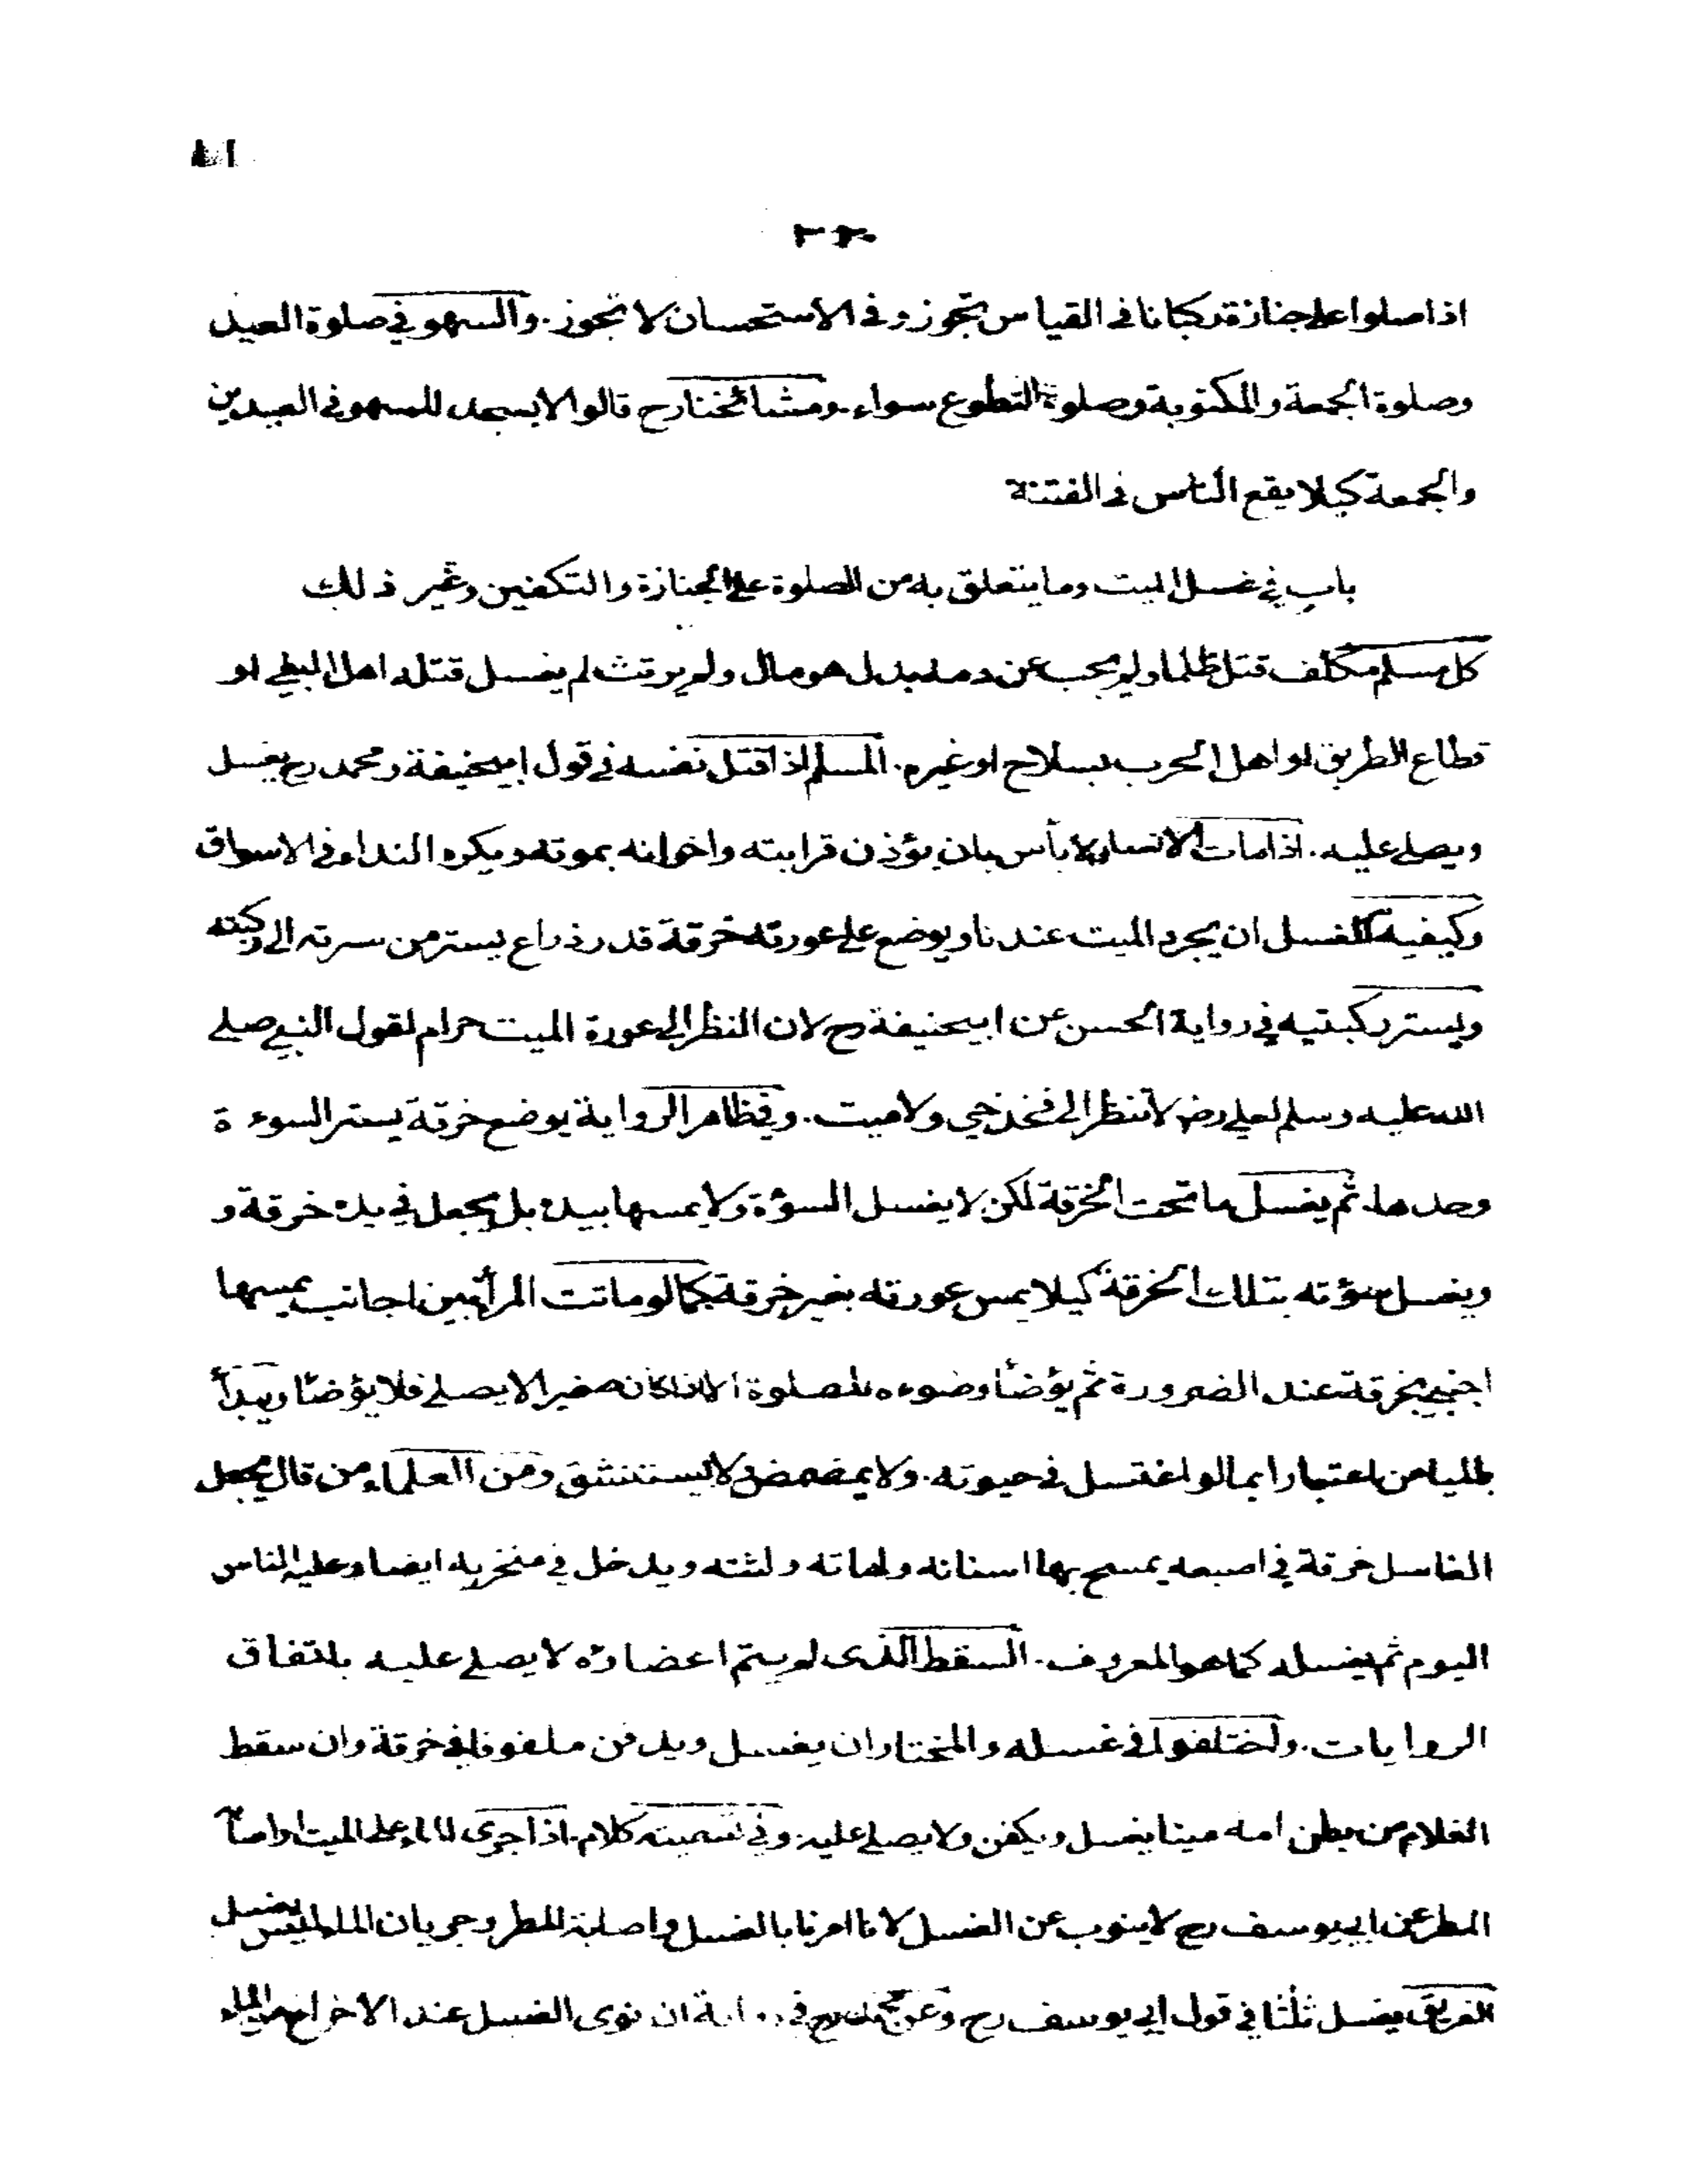 اذا صلوا على جنازة ركبانا في القياس تجوز وفي الاستحسان لا تجوز. والسهو في صلوة العيد
وصلوة الجمعة والمكتوبة وصلوة التطوع سواء. ومشائخنا رح قالوا لا يسجد للسهو في العيدين
والجمعة كيلا يقع الناس في الفتنة
باب في غسل الميت وما يتعلق به من الصلوة على الجنازة والتكفين وغير ذلك
كل مسلم مكلف قتل ظلما ولم يجب عن دمه بدل هو مال ولم يرتث لم يغسل قتله اهل البغي او
قطاع الطريق او اهل الحرب بسلاح او غيره. المسلم اذا قتل نفسه في قول ابيحنيفة ومحمد رح يغسل
ويصلى عليه. اذا مات الانسان لا بأس بان يؤذن قرابته واخوانه بموته ويكره النداء في الاسواق
وكيفية الغسل ان يجرد الميت عندنا ويوضع على عورته خرقة قدر ذراع يستر من سرته الى ركبته
ويستر ركبتيه في رواية الحسن عن ابيحنيفة رح لان النظر الى عورة الميت حرام لقول النبي صلى
الله عليه وسلم لعلي رض لا تنظر الى فخذ حي ولا ميت. وفي ظاهر الرواية يوضع خرقة يستر السوءة
وحدها. ثم يغسل ما تحت الخرقة لكن لا يغسل السؤة ولا يمسها بيده بل يجعل في يده خرقة و
ويغسل سؤته بتلك الخرقة كيلا يمس عورته بغير خرقة كما لو ماتت المرأة بين اجانب يمسها
اجنبي بخرقة عند الضرورة ثم يؤضأ وضوءه للصلوة الا اذا كان صغيرا لا يصلي فلا يؤضأ ويبدأ
بالميامن اعتبارا بما لو اغتسل في حيوته. ولا يمضمض ولا يستنشق ومن العلماء من قال يجعل
الغاسل خرقة في اصبعه يمسح بها اسنانه ولهاته ولثته ويدخل في منخريه ايضا وعليه الناس
اليوم ثم يغسله كما هو المعروف. السقط الذى لم يتم اعضاؤه لا يصلى عليه باتفاق
الروايات. واختلفوا في غسله والمختار ان يغسل ويدفن ملفوفا في خرقة وان سقط
الغلام من بطن امه ميتا يغسل ويكفن ولا يصلى عليه وفي تسميته كلام. اذا جرى الماء على الميت او اصابه
المطر عن ابي يوسف رح لا ينوب عن الغسل لانا امرنا بالغسل واصابة المطر وجريان الماء ليس بغسل
الغريق يغسل ثلثا في قول ابي يوسف رح وعن محمد رح في رواية ان نوى الغسل عند الاخراج من الماء